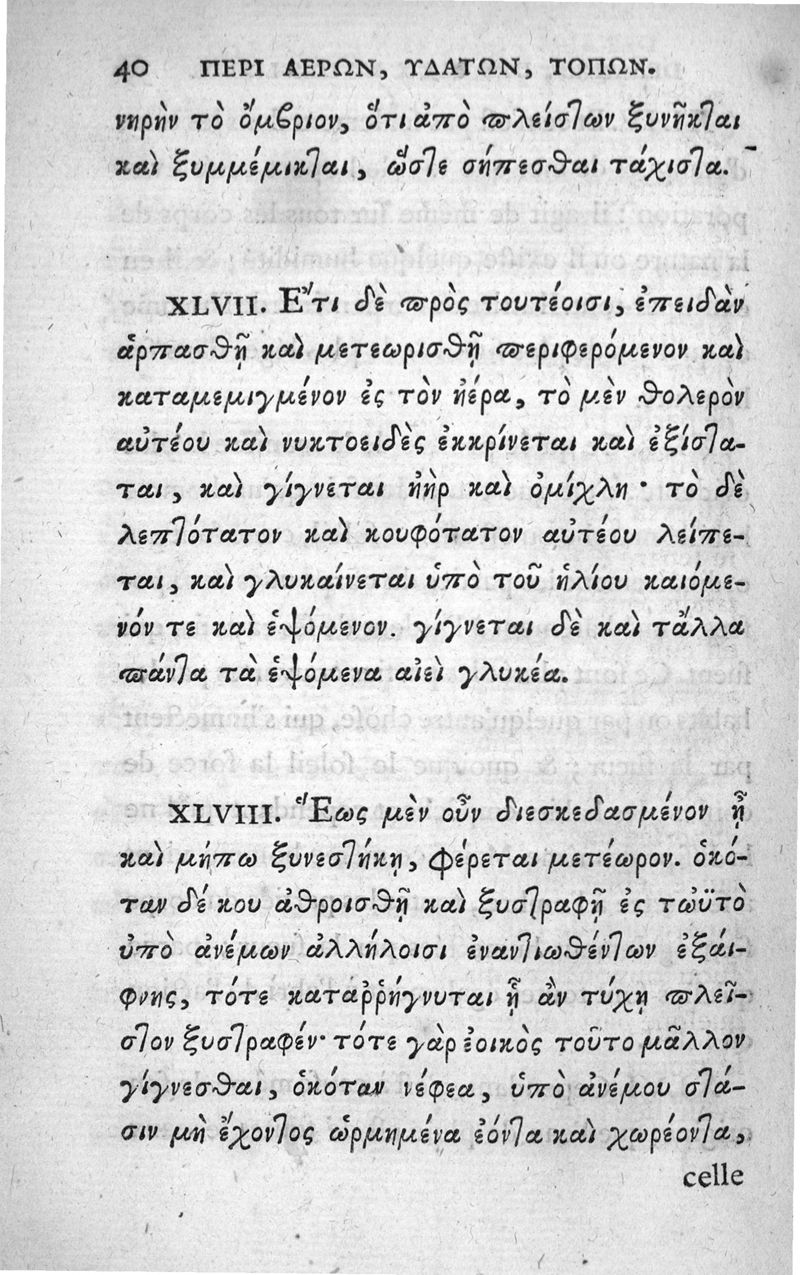 40 ΠΕΡΙ ΑΕΡΩΝ, ΥΔΑΤΩΝ, ΤΟΠΩΝ.
νηρὴν τὸ ὄμβριον, ὅτι ἀπὸ πλείστων ξυνῆκται
καὶ ξυμμέμικται, ὥστε σήπεσθαι τάχιστα.
XLVII. Ἔτι δὲ πρὸς τουτέοισι, ἐπειδὰν
ἁρπασθῇ καὶ μετεωρισθῇ περιφερόμενον καὶ
καταμεμιγμένον ἐς τὸν ἠέρα, τὸ μὲν θολερὸν
αὐτέου καὶ νυκτοειδὲς ἐκκρίνεται καὶ ἐξίστα-
ται, καὶ γίγνεται ἠὴρ καὶ ὁμίχλη · τὸ δὲ
λεπτότατον καὶ κουφότατον αὐτέου λείπε-
ται, καὶ γλυκαίνεται ὑπὸ τοῦ ἡλίου καιόμε-
νόν τε καὶ ἑψόμενον. γίγνεται δὲ καὶ τἄλλα
πάντα τὰ ἑψόμενα αἰεὶ γλυκέα.
XLVIII. Ἕως μὲν οὖν διεσκεδασμένον ᾖ
καὶ μήπω ξυνεστήκῃ, φέρεται μετέωρον. ὁκό-
ταν δέ κου ἀθροισθῇ καὶ ξυστραφῇ ἐς τὠϋτὸ
ὑπὸ ἀνέμων ἀλλήλοισι ἐναντιωθέντων ἐξάι-
φνης, τότε καταῤῥήγνυται ᾗ ἂν τύχῃ πλεῖ-
στον ξυστραφέν· τότε γὰρ ἐοικὸς τοῦτο μᾶλλον
γίγνεσθαι, ὁκόταν νέφεα, ὑπὸ ἀνέμου στά-
σιν μὴ ἔχοντος ὡρμημένα ἐόντα καὶ χωρέοντα,
celle